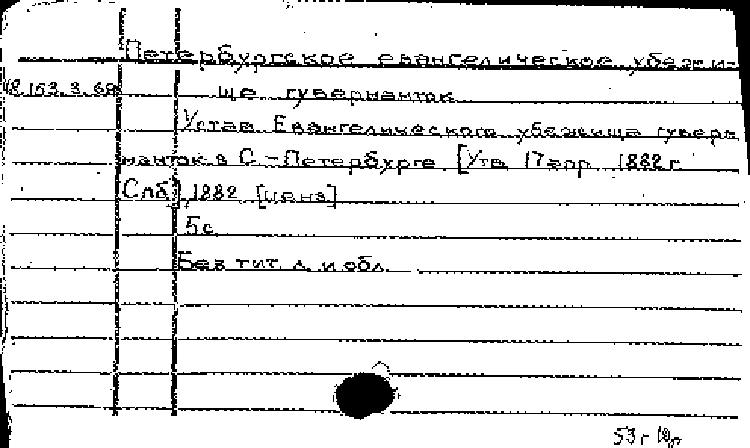 Петербургское евангелическое убежи-
18.153.3.68 ще гувернанток
Устав Евангелического убежища гувер
нанток в С-Петербурге [Утв 17 апр 1882 г
Спб], 1882 [ценз]
5 с
Без тит. л. и обл.
53 г